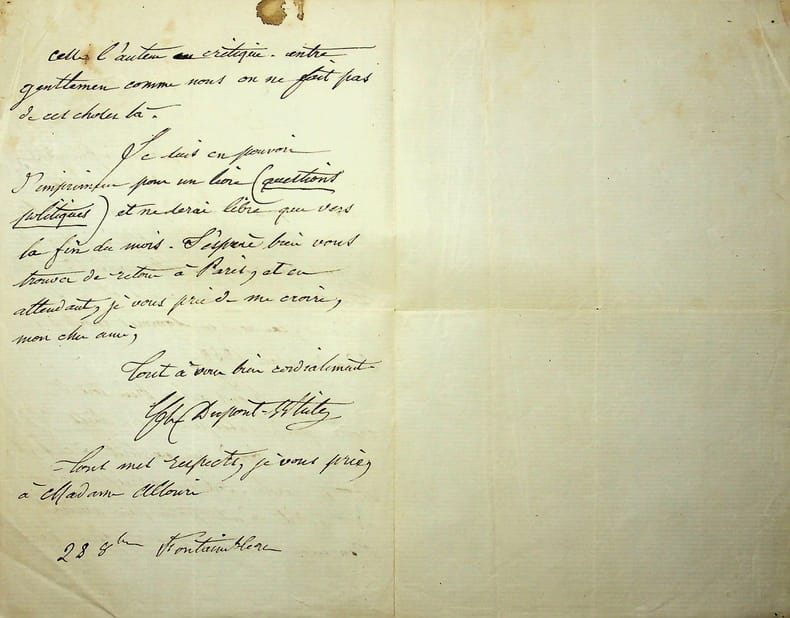 celle l'auteur ou critique. entre
gentlemen comme nous on ne fait pas
de ces choses là.
Je suis en pouvoir
d'imprimeur pour un livre (questions
politiques) et ne serai libre que vers
la fin du mois. J'espère bien vous
trouver de retour à Paris, et en
attendant, je vous prie de me croire,
mon cher ami,
Tout à vous bien cordialement
Ch. Dupont-White
Tous mes respects, je vous prie,
à Madame
28 8bre Fontainebleau